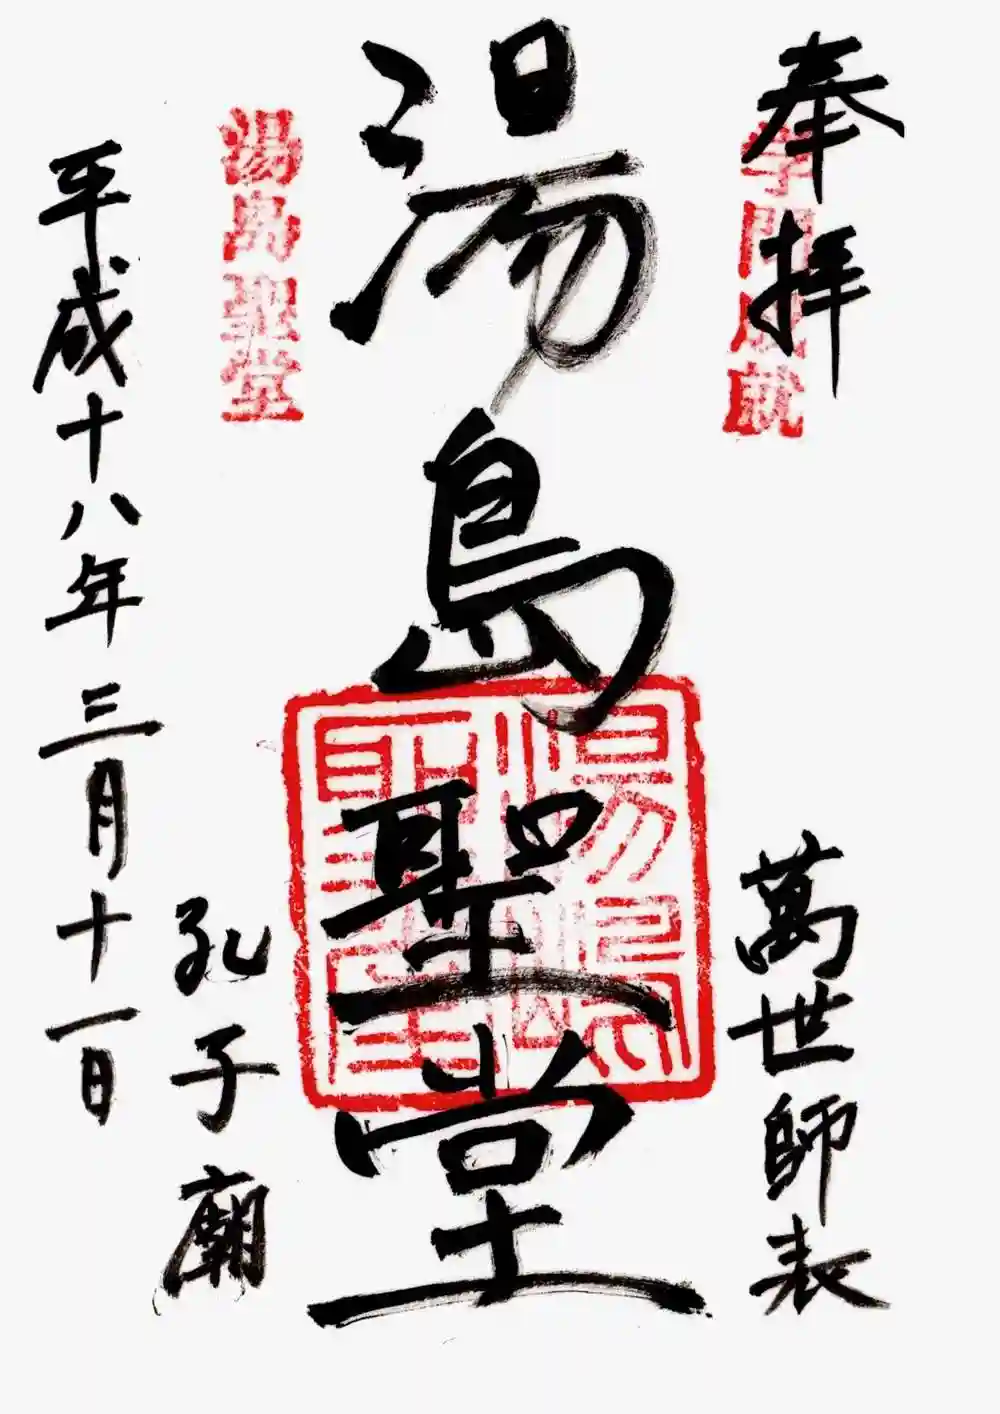 奉拝
学問成就
萬世師表
湯島聖堂
湯島聖堂
湯島聖堂
孔子廟
平成十八年三月十一日